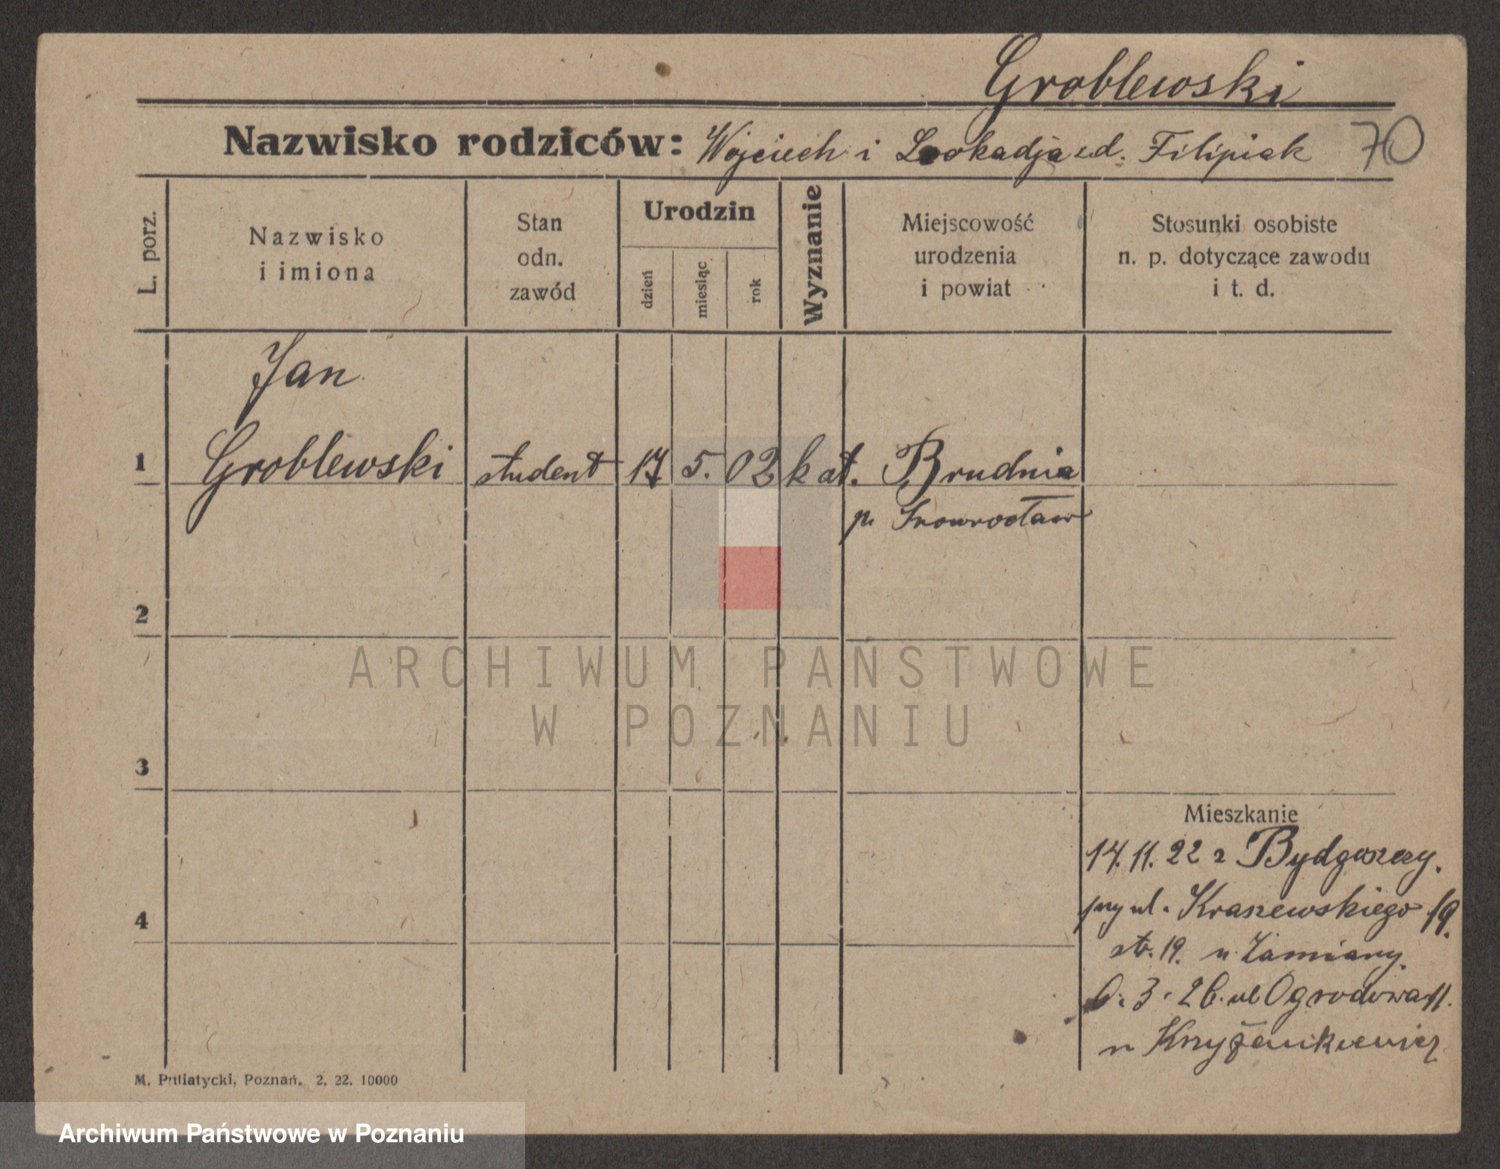 Groblewski
Nazwisko rodziców: Wojciech i Leokadja zd. Filipiak 70
L. porz.
Nazwisko
i imiona
Stan
odn.
zawód
Urodzin
dzień
miesiąc
rok
Wyznanie
Miejscowość
urodzenia
i powiat
Stosunki osobiste
n. p. dotyczące zawodu
i t. d.
Jan
1 Groblewski student 17 5. 02 kat. Brudnia
p. Inowrocław
2
ARCHIWUM PAŃSTWOWE
W POZNANIU
3
Mieszkanie
14.11.22 z Bydgoszczy.
przy ul. Kraszewskiego 19.
4
str. 19. u
6.3.26. ul Ogrodowa 11.
u Krzyżankiewicz
M. Putiatycki, Poznań. 2. 22. 10000
Archiwum Państwowe w Poznaniu